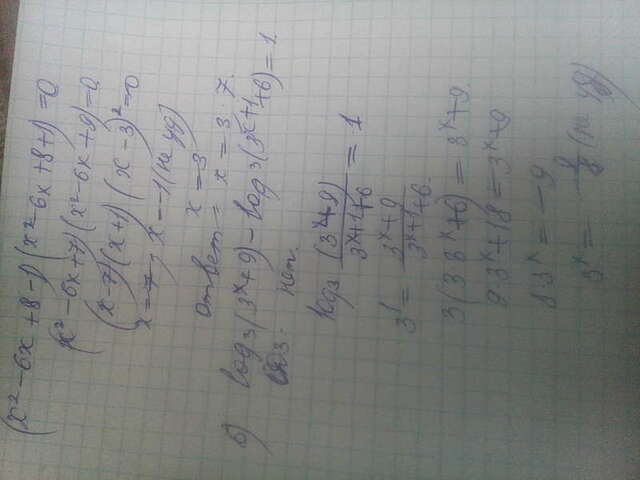 (x² - 6x + 8 - 1)(x² - 6x + 8 + 1) = 0
(x² - 6x + 7)(x² - 6x + 9) = 0
(x - 7)(x + 1)(x - 3)² = 0
x = 7, x = -1 (не уд)
x = 3
ответ: x = 3; 7.
б) log₃(3ˣ + 9) - log₃(3ˣ⁺¹ + 6) = 1.
нет.
log₃ (3ˣ + 9)/(3ˣ⁺¹ + 6) = 1
3¹ = (3ˣ + 9)/(3ˣ⁺¹ + 6).
3(3·3ˣ + 6) = 3ˣ + 9.
9·3ˣ + 18 = 3ˣ + 9
8·3ˣ = -9
3ˣ = -9/8 (не уд)